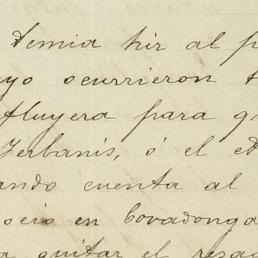 Demia hir al p
yo ocurrieron
fluyera para q
Zerbanis, ó el ed
ando cuenta al
ocio en Covadonga
a quitar el resa